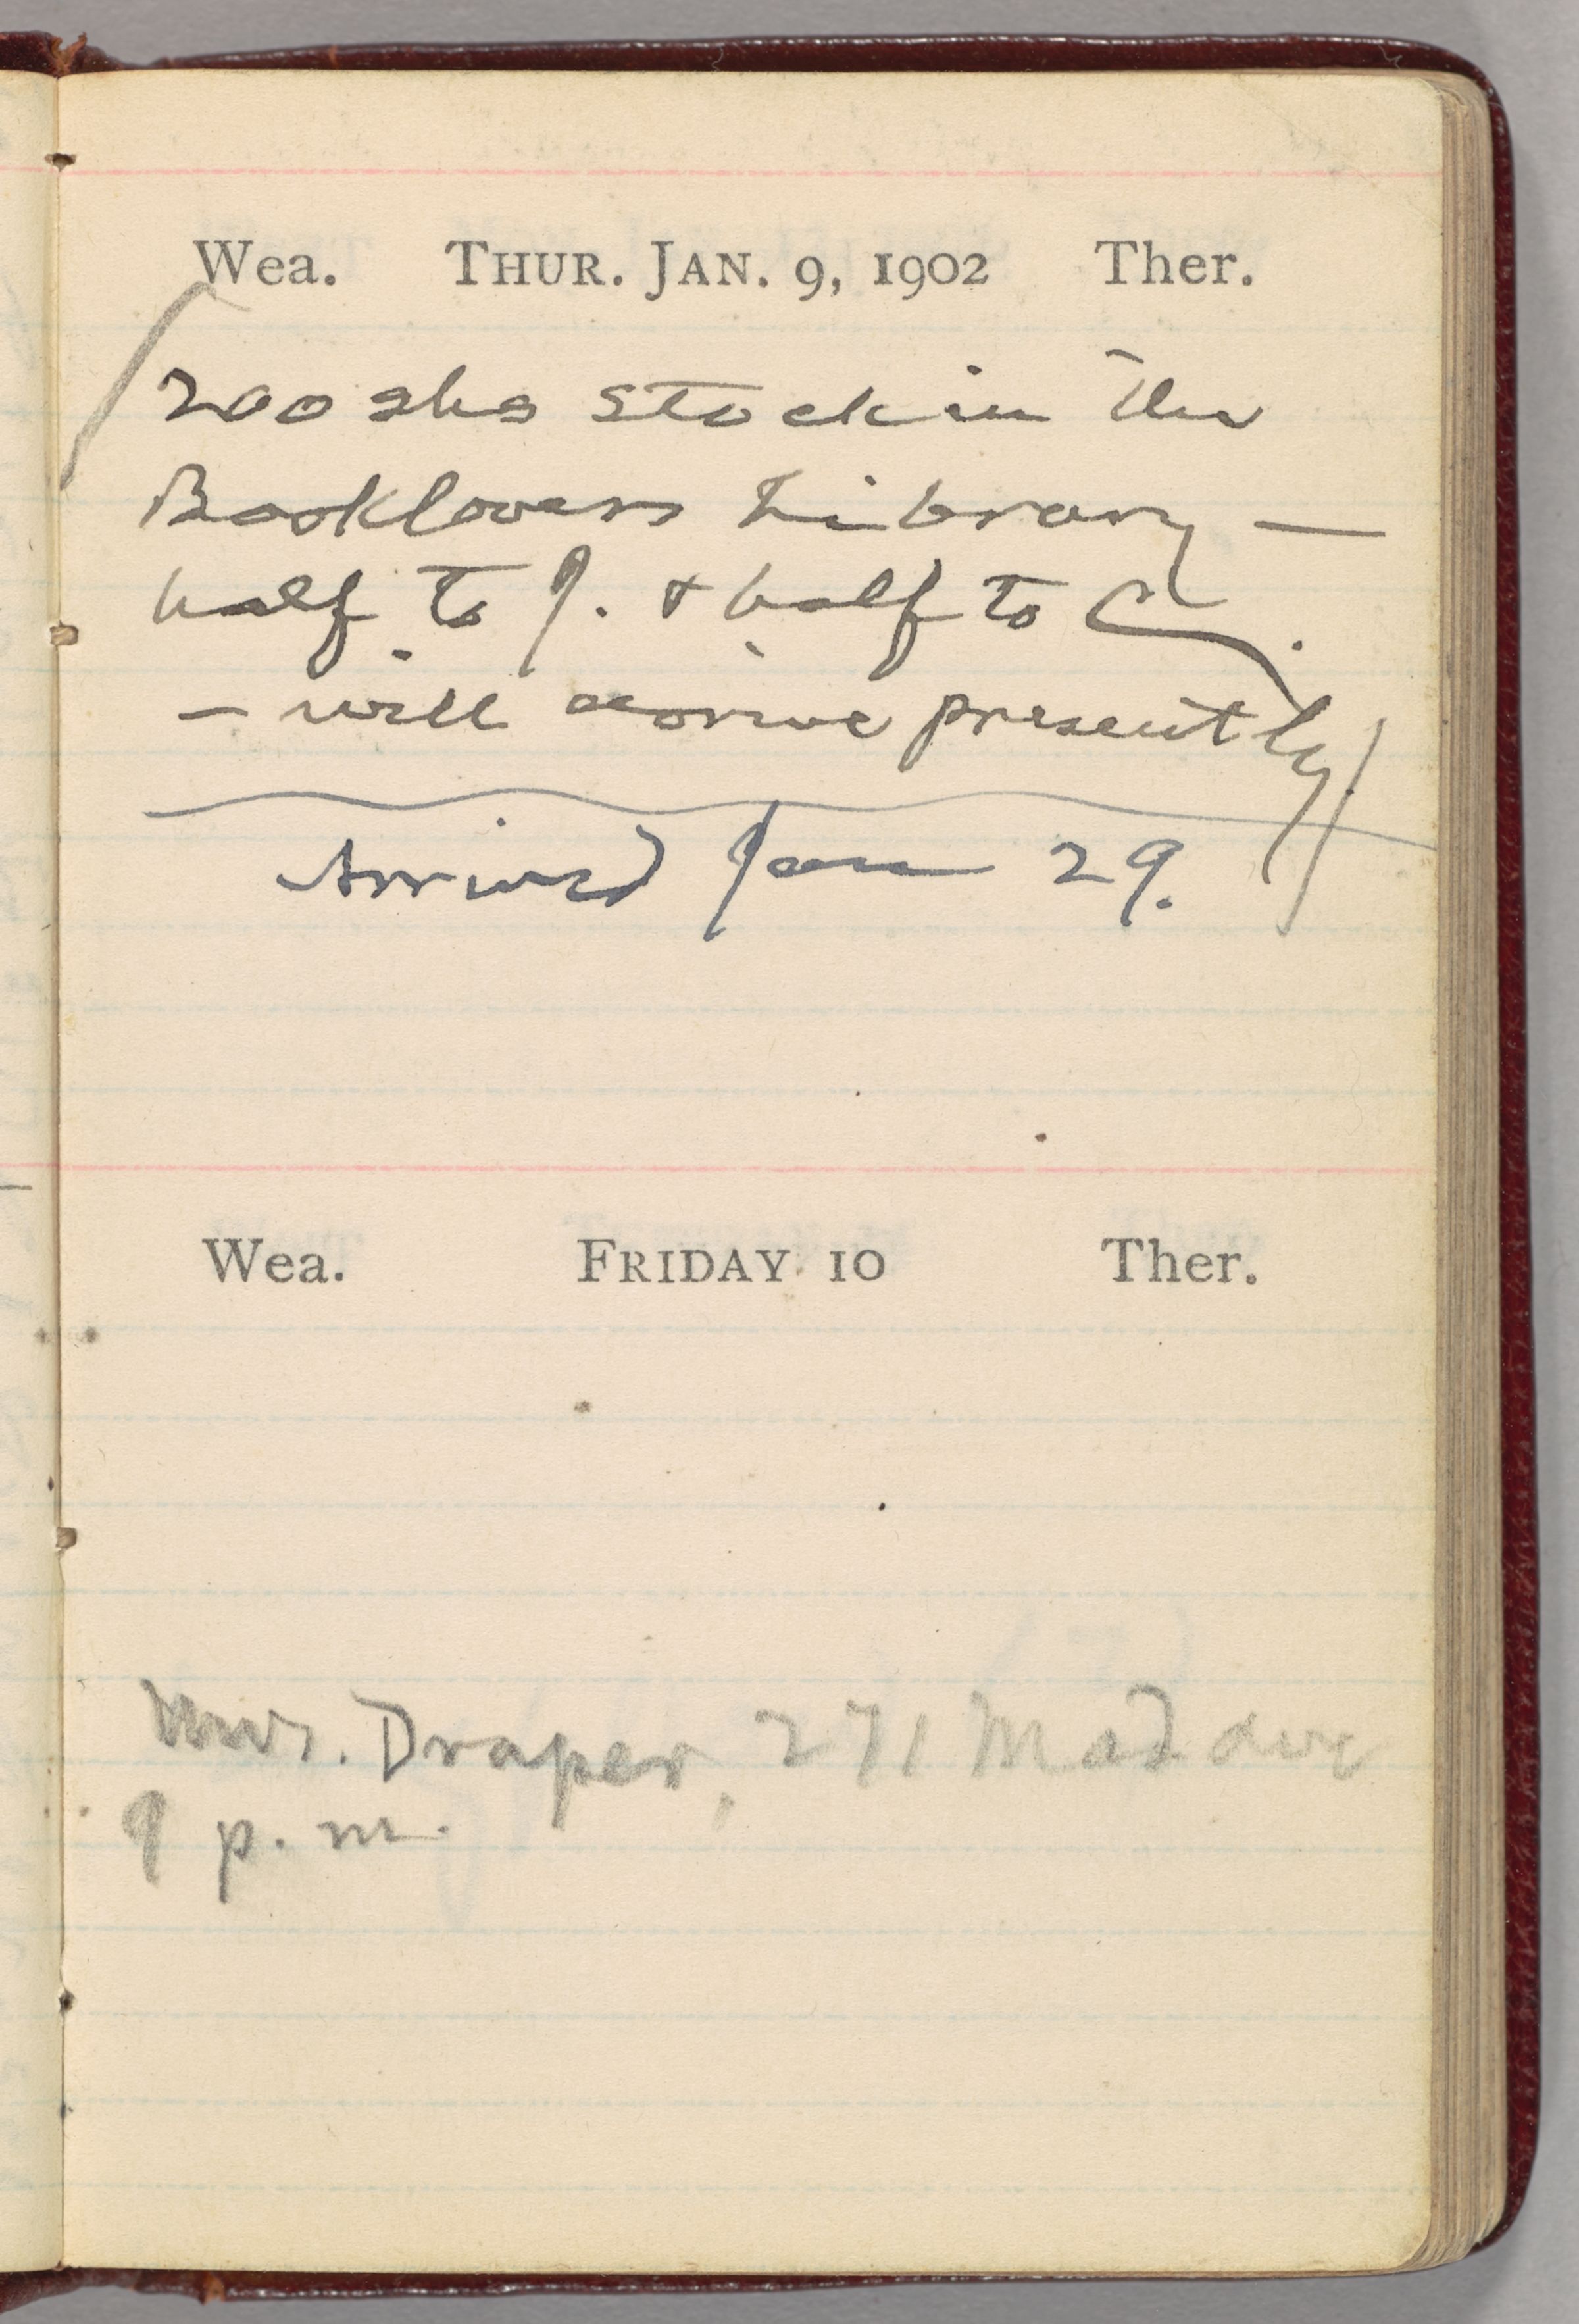 Wea. THUR. JAN. 9, 1902 Ther.
200 shs stock in the
Booklovers Library —
half to J. & half to C.
— will arrive presently
Arrived Jan 29.
Wea. FRIDAY 10 Ther.
Mrs. Draper, 271 Mad ave
9 p.m.